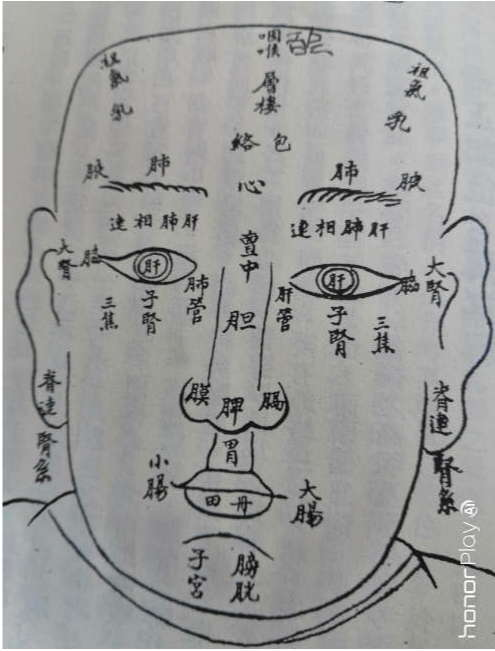 咽喉
祖氣 乳
祖氣 乳
層樓
絡包
腋 肺
肺 腋
心
連相肺肝
連相肺肝
中
大腎 腦 肝 肺管
肝管 肝 腦 大腎
胆
三焦 子腎
子腎 三焦
膜 脾 腸
胃
脊連腎系
脊連腎系
小腸
大腸
田丹
子宮
膀胱
honorPlay AI